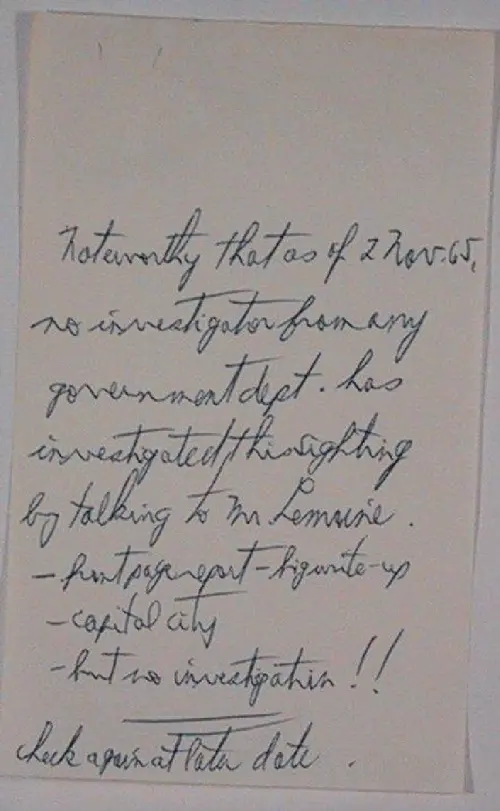 Noteworthy that as of 2 Nov. 65,
no investigator from any
government dept. has
investigated this sighting
by talking to Mr. Lemoine.
- front page report - big write-up
- capital city
- but no investigation !!
check again at later date.